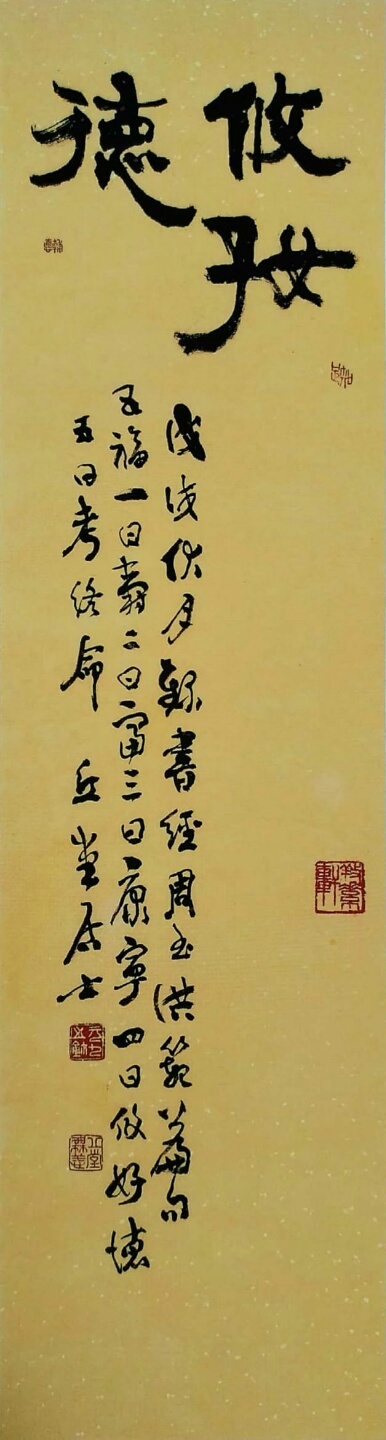 攸好
德
戊戌伏月錄書經周書洪範篇句
五福一曰壽二曰富三曰康寧四曰攸好德
五曰考終命 丘堂居士